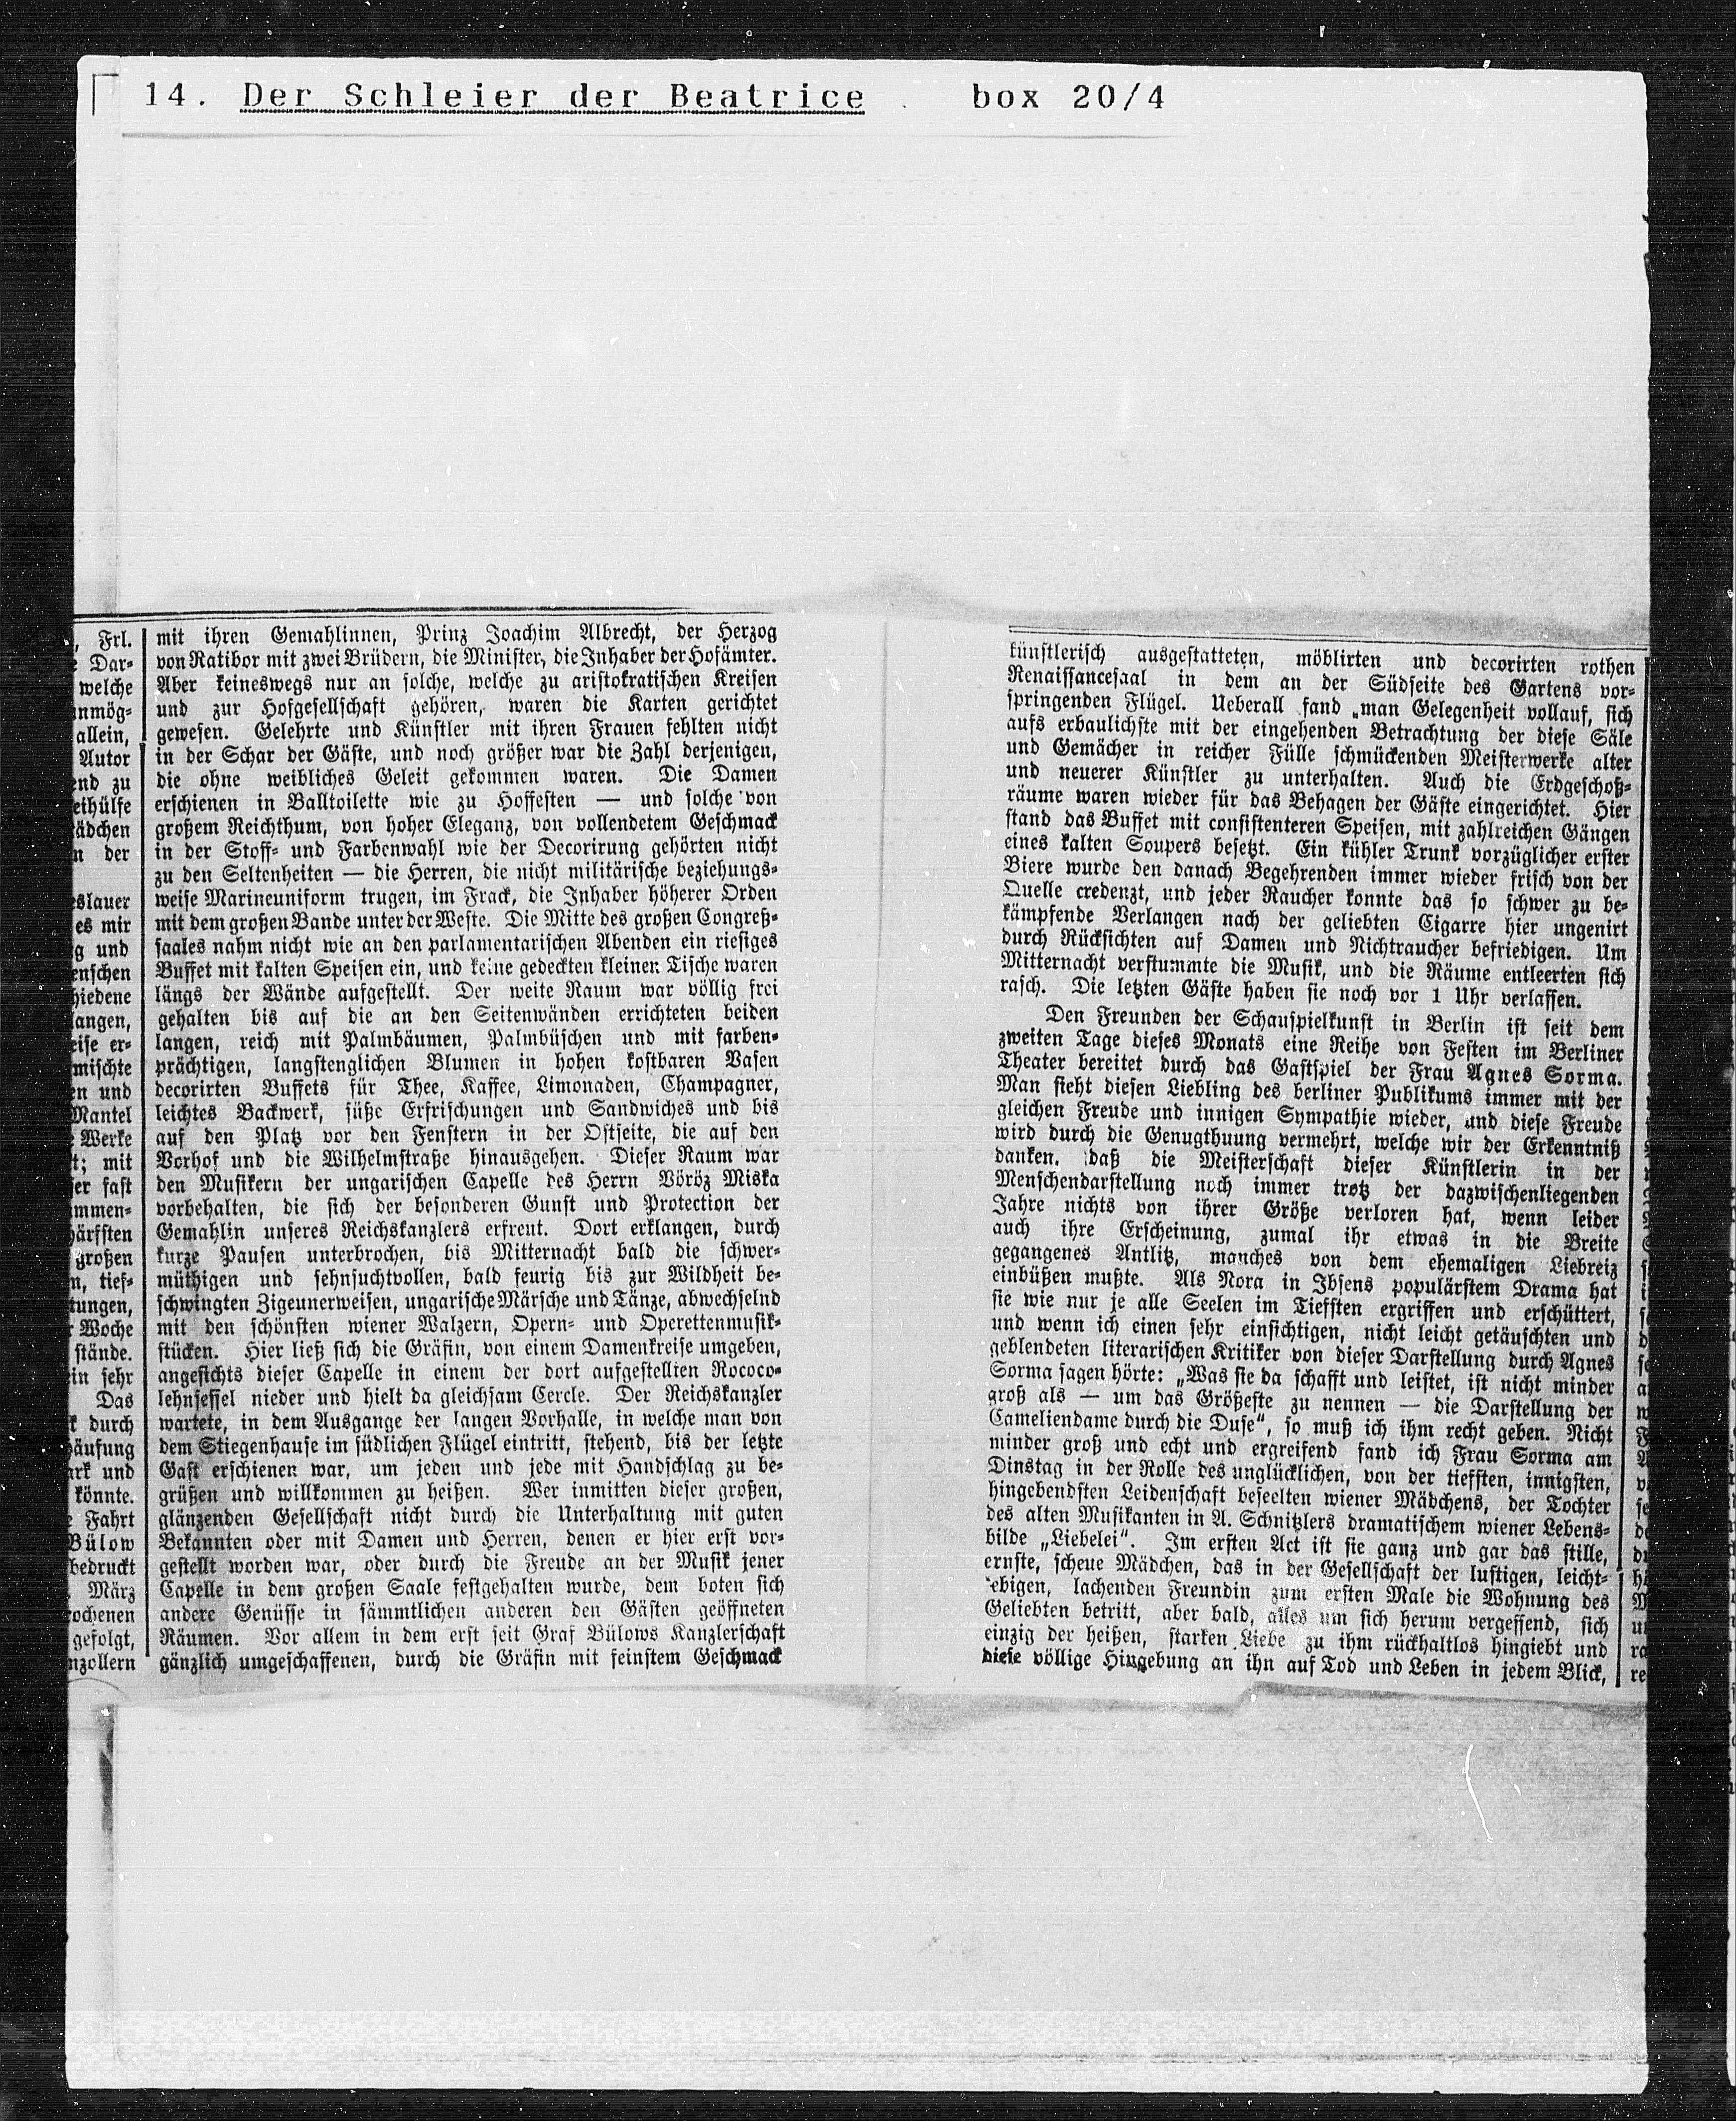 14. Der Schleier der Beatrice . box 20/4
, Frl.
Dar-
welche
nmög-
allein,
Autor
end zu
eihülfe
ädchen
n der
eslauer
es mir
g und
enschen
hiedene
langen,
eise er-
mischte
en und
Mantel
Werke
t; mit
er fast
mmen-
härfsten
großen
n, tief-
tungen,
Woche
stände.
in sehr
Das
k durch
häufung
ark und
könnte.
Fahrt
Bülow
bedruckt
März
rochenen
gefolgt,
nzollern
mit ihren Gemahlinnen, Prinz Joachim Albrecht, der Herzog
von Ratibor mit zwei Brüdern, die Minister, die Inhaber der Hofämter.
Aber keineswegs nur an solche, welche zu aristokratischen Kreisen
und zur Hofgesellschaft gehören, waren die Karten gerichtet
gewesen. Gelehrte und Künstler mit ihren Frauen fehlten nicht
in der Schar der Gäste, und noch größer war die Zahl derjenigen,
die ohne weibliches Geleit gekommen waren. Die Damen
erschienen in Balltoilette wie zu Hoffesten — und solche von
großem Reichthum, von hoher Eleganz, von vollendetem Geschmack
in der Stoff- und Farbenwahl wie der Decorirung gehörten nicht
zu den Seltenheiten — die Herren, die nicht militärische beziehungs-
weise Marineuniform trugen, im Frack, die Inhaber höherer Orden
mit dem großen Bande unter der Weste. Die Mitte des großen Congreß-
saales nahm nicht wie an den parlamentarischen Abenden ein riesiges
Buffet mit kalten Speisen ein, und keine gedeckten kleinen Tische waren
längs der Wände aufgestellt. Der weite Raum war völlig frei
gehalten bis auf die an den Seitenwänden errichteten beiden
langen, reich mit Palmbäumen, Palmbüschen und mit farben-
prächtigen, langstenglichen Blumen in hohen kostbaren Vasen
decorirten Buffets für Thee, Kaffee, Limonaden, Champagner,
leichtes Backwerk, süße Erfrischungen und Sandwiches und bis
auf den Platz vor den Fenstern in der Ostseite, die auf den
Vorhof und die Wilhelmstraße hinausgehen. Dieser Raum war
den Musikern der ungarischen Capelle des Herrn Vöröz Miska
vorbehalten, die sich der besonderen Gunst und Protection der
Gemahlin unseres Reichskanzlers erfreut. Dort erklangen, durch
kurze Pausen unterbrochen, bis Mitternacht bald die schwer-
müthigen und sehnsuchtvollen, bald feurig bis zur Wildheit be-
schwingten Zigeunerweisen, ungarische Märsche und Tänze, abwechselnd
mit den schönsten wiener Walzern, Opern- und Operettenmusik-
stücken. Hier ließ sich die Gräfin, von einem Damenkreise umgeben,
angesichts dieser Capelle in einem der dort aufgestellten Rococo-
lehnsessel nieder und hielt da gleichsam Cercle. Der Reichskanzler
wartete, in dem Ausgange der langen Vorhalle, in welche man von
dem Stiegenhause im südlichen Flügel eintritt, stehend, bis der letzte
Gast erschienen war, um jeden und jede mit Handschlag zu be-
grüßen und willkommen zu heißen. Wer inmitten dieser großen,
glänzenden Gesellschaft nicht durch die Unterhaltung mit guten
Bekannten oder mit Damen und Herren, denen er hier erst vor-
gestellt worden war, oder durch die Freude an der Musik jener
Capelle in dem großen Saale festgehalten wurde, dem boten sich
andere Genüsse in sämmtlichen anderen den Gästen geöffneten
Räumen. Vor allem in dem erst seit Graf Bülows Kanzlerschaft
gänzlich umgeschaffenen, durch die Gräfin mit feinstem Geschmack
künstlerisch ausgestatteten, möblirten und decorirten rothen
Renaissancesaal in dem an der Südseite des Gartens vor-
springenden Flügel. Ueberall fand man Gelegenheit vollauf, sich
aufs erbaulichste mit der eingehenden Betrachtung der diese Säle
und Gemächer in reicher Fülle schmückenden Meisterwerke alter
und neuerer Künstler zu unterhalten. Auch die Erdgeschoß-
räume waren wieder für das Behagen der Gäste eingerichtet. Hier
stand das Buffet mit consistenteren Speisen, mit zahlreichen Gängen
eines kalten Soupers besetzt. Ein kühler Trunk vorzüglicher erster
Biere wurde den danach Begehrenden immer wieder frisch von der
Quelle credenzt, und jeder Raucher konnte das so schwer zu be-
kämpfende Verlangen nach der geliebten Cigarre hier ungenirt
durch Rücksichten auf Damen und Nichtraucher befriedigen. Um
Mitternacht verstummte die Musik, und die Räume entleerten sich
rasch. Die letzten Gäste haben sie noch vor 1 Uhr verlassen.
Den Freunden der Schauspielkunst in Berlin ist seit dem
zweiten Tage dieses Monats eine Reihe von Festen im Berliner
Theater bereitet durch das Gastspiel der Frau Agnes Sorma.
Man sieht diesen Liebling des berliner Publikums immer mit der
gleichen Freude und innigen Sympathie wieder, und diese Freude
wird durch die Genugthuung vermehrt, welche wir der Erkenntniß
danken, daß die Meisterschaft dieser Künstlerin in der
Menschendarstellung noch immer trotz der dazwischenliegenden
Jahre nichts von ihrer Größe verloren hat, wenn leider
auch ihre Erscheinung, zumal ihr etwas in die Breite
gegangenes Antlitz, manches von dem ehemaligen Liebreiz
einbüßen mußte. Als Nora in Ibsens populärstem Drama hat
sie wie nur je alle Seelen im Tiefsten ergriffen und erschüttert,
und wenn ich einen sehr einsichtigen, nicht leicht getäuschten und
geblendeten literarischen Kritiker von dieser Darstellung durch Agnes
Sorma sagen hörte: „Was sie da schafft und leistet, ist nicht minder
groß als — um das Größeste zu nennen — die Darstellung der
Cameliendame durch die Duse", so muß ich ihm recht geben. Nicht
minder groß und echt und ergreifend fand ich Frau Sorma am
Dinstag in der Rolle des unglücklichen, von der tiefsten, innigsten,
hingebendsten Leidenschaft beseelten wiener Mädchens, der Tochter
des alten Musikanten in A. Schnitzlers dramatischem wiener Lebens-
bilde „Liebelei". Im ersten Act ist sie ganz und gar das stille,
ernste, scheue Mädchen, das in der Gesellschaft der lustigen, leicht-
ebigen, lachenden Freundin zum ersten Male die Wohnung des
Geliebten betritt, aber bald, alles um sich herum vergessend, sich
einzig der heißen, starken Liebe zu ihm rückhaltlos hingiebt und
diese völlige Hingebung an ihn auf Tod und Leben in jedem Blick,